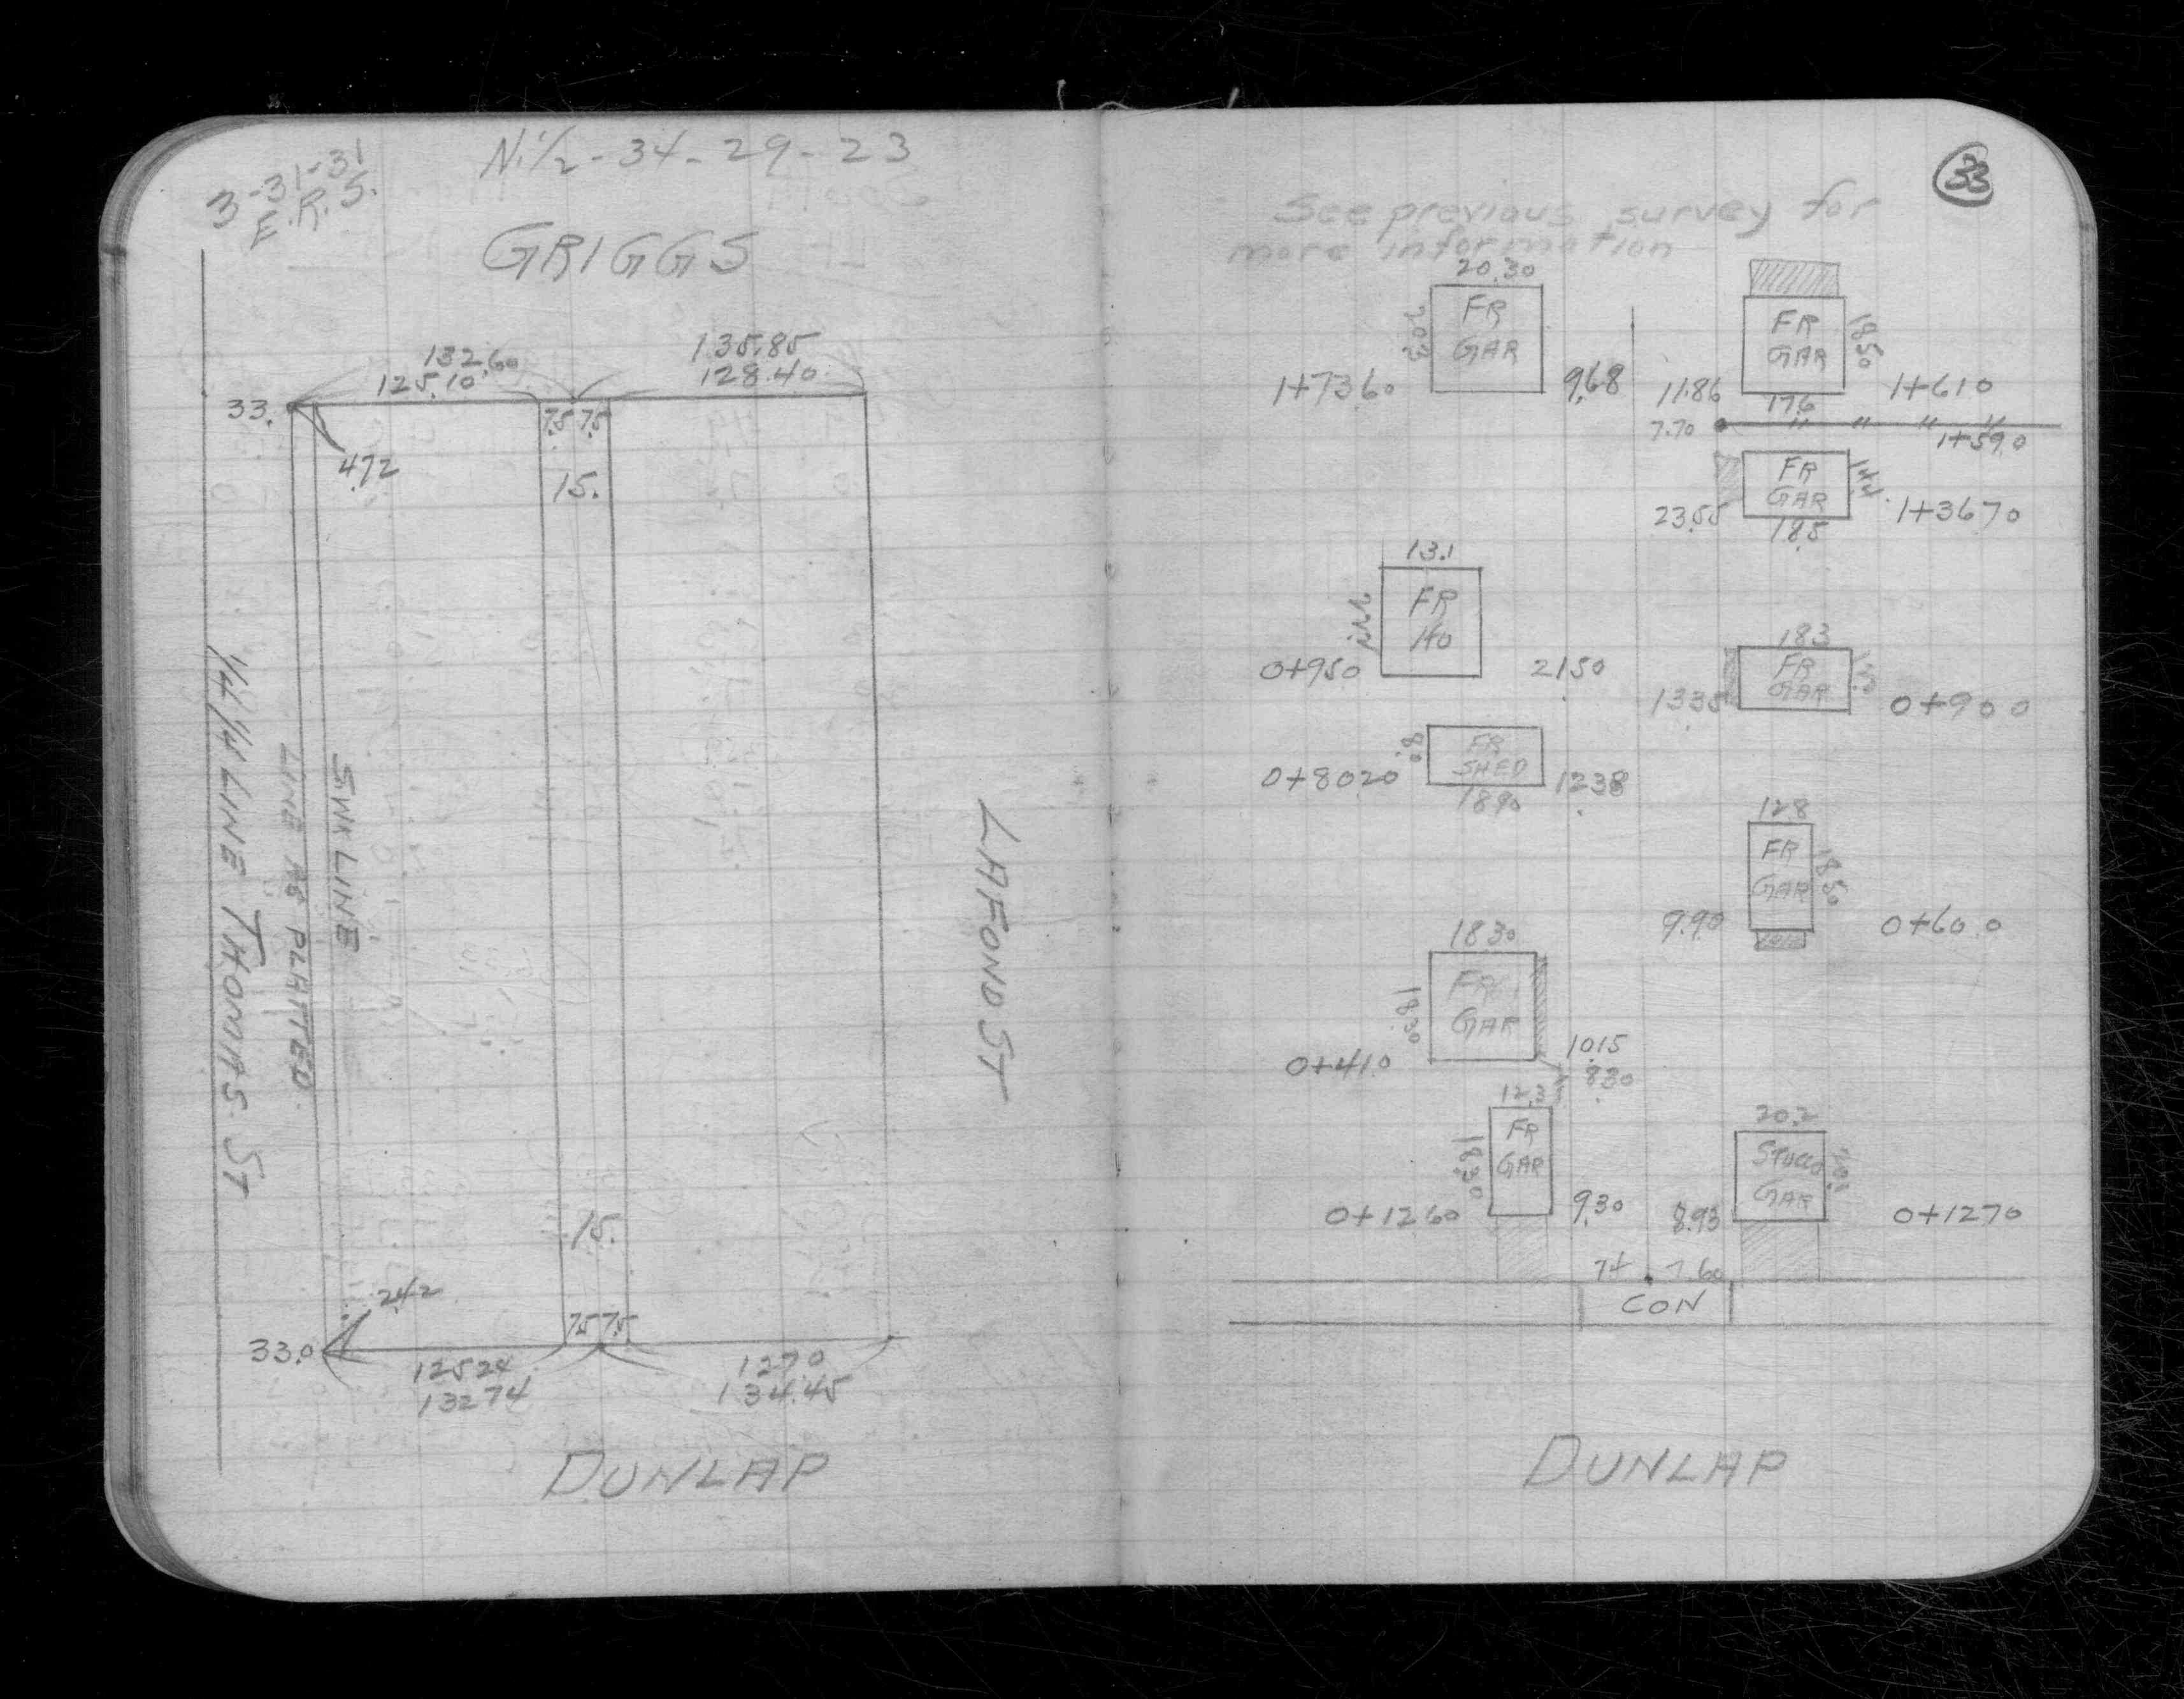 3-31-31
E.R.S.
N.1/2-34-29-23
GRIGGS
132.60
125.10
135.85
128.40
33.
7.5 7.5
4.72
15.
1/4 1/4 LINE THOMAS ST
LINE AS PLATTED
SWK LINE
LAFOND ST
15.
2.42
33.0
7.5 7.5
125.24
132.74
127.0
134.45
DUNLAP
33
See previous survey for
more information
20.30
FR
GAR
20.2
1+73.60
9.68
FR
GAR
18.50
11.86
17.6
1+61.0
7.70
1+59.0
FR
GAR
23.55
18.5
1+36.70
13.1
FR
HO
0+95.0
21.50
18.3
FR
GAR
13.35
0+90.0
8.0
FR
SHED
0+80.20
18.90
12.38
12.8
FR
GAR
18.50
9.90
0+60.0
18.30
FR
GAR
18.30
0+41.0
10.15
8.30
12.3
FR
GAR
18.30
0+12.60
9.30
20.2
STUCCO
GAR
8.93
0+12.70
7.4 7.60
CON
DUNLAP